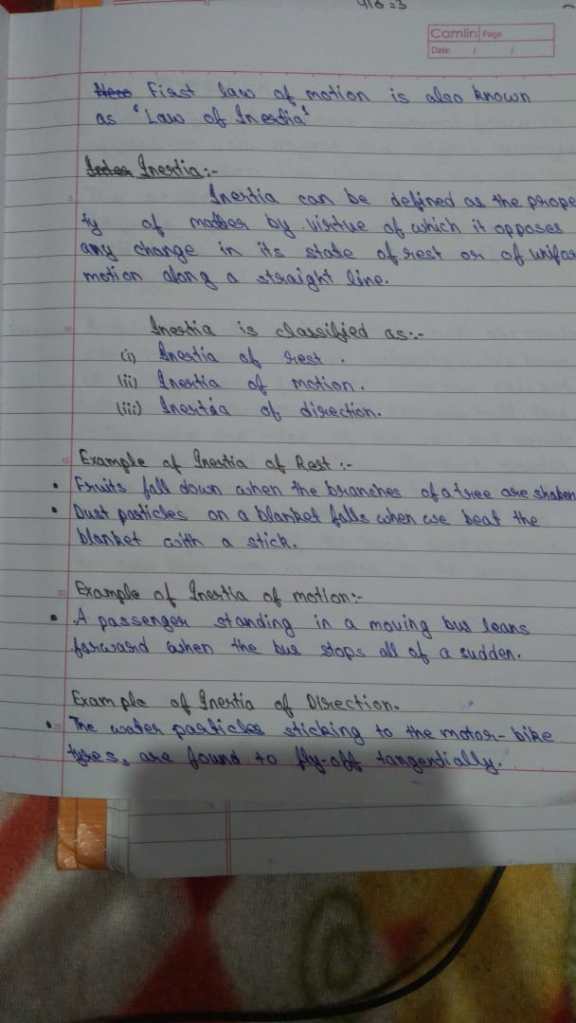 Camlin Page
Date / /
First law of motion is also known
as 'Law of Inertia'
Inertia:-
Inertia can be defined as the prope
ty of matter by virtue of which it opposes
any change in its state of rest or of unifor
motion along a straight line.
Inertia is classified as:-
(i) Inertia of rest.
(ii) Inertia of motion.
(iii) Inertia of direction.
Example of Inertia of Rest :-
• Fruits fall down when the branches of a tree are shaken
• Dust particles on a blanket falls when we beat the
blanket with a stick.
Example of Inertia of motion:-
• A passenger standing in a moving bus leans
forward when the bus stops all of a sudden.
Example of Inertia of Direction.
• The water particles sticking to the motor-bike
tyres, are found to fly-off tangentially.